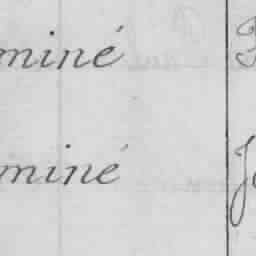 miné
miné